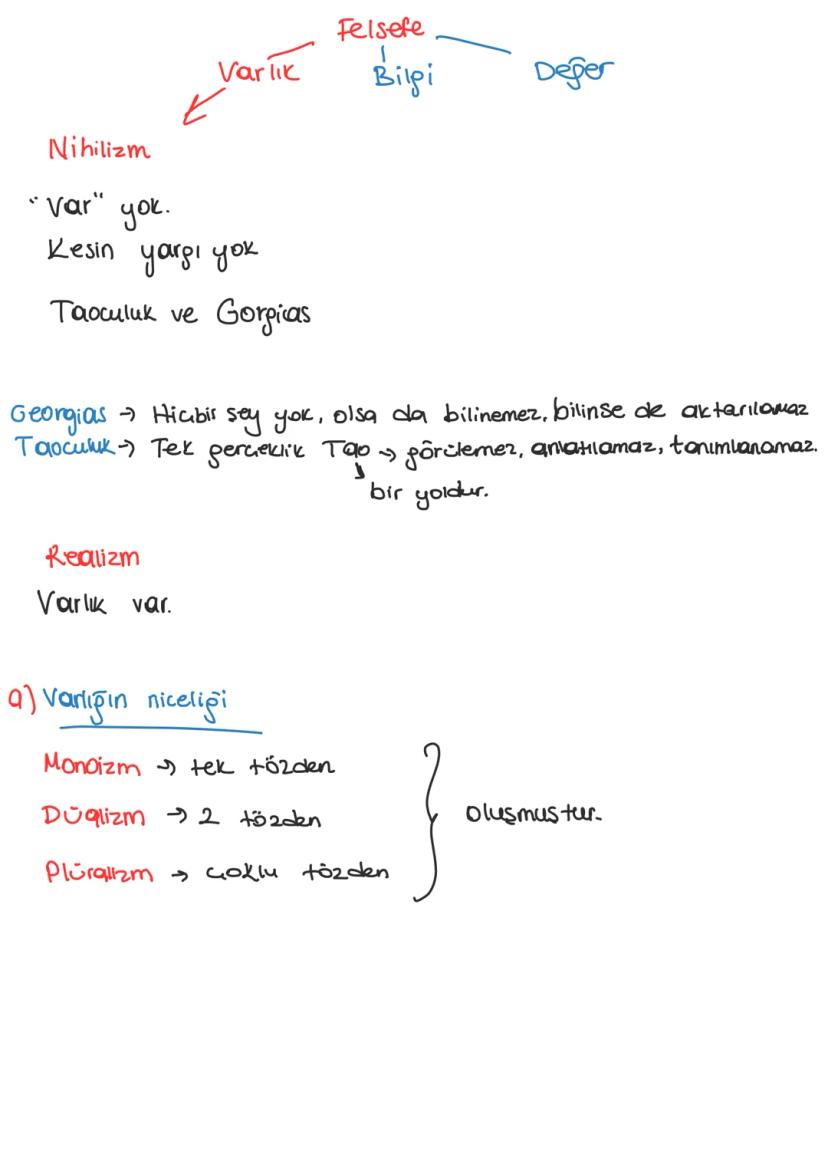 Felsefe
Varlık Bilgi Değer
Nihilizm
"Var" yok.
Kesin yargı yok
Taoculuk ve Gorgias
Georgias → Hiçbir şey yok, olsa da bilinemez, bilinse de aktarılamaz
Taoculuk → Tek gerçeklik Tao → görülemez, anlatılamaz, tanımlanamaz.
bir yoldur.
Realizm
Varlık var.
a) Varlığın niceliği
Monoizm → tek tözden
Düalizm → 2 tözden
oluşmuştur.
Plüralizm → çoklu tözden